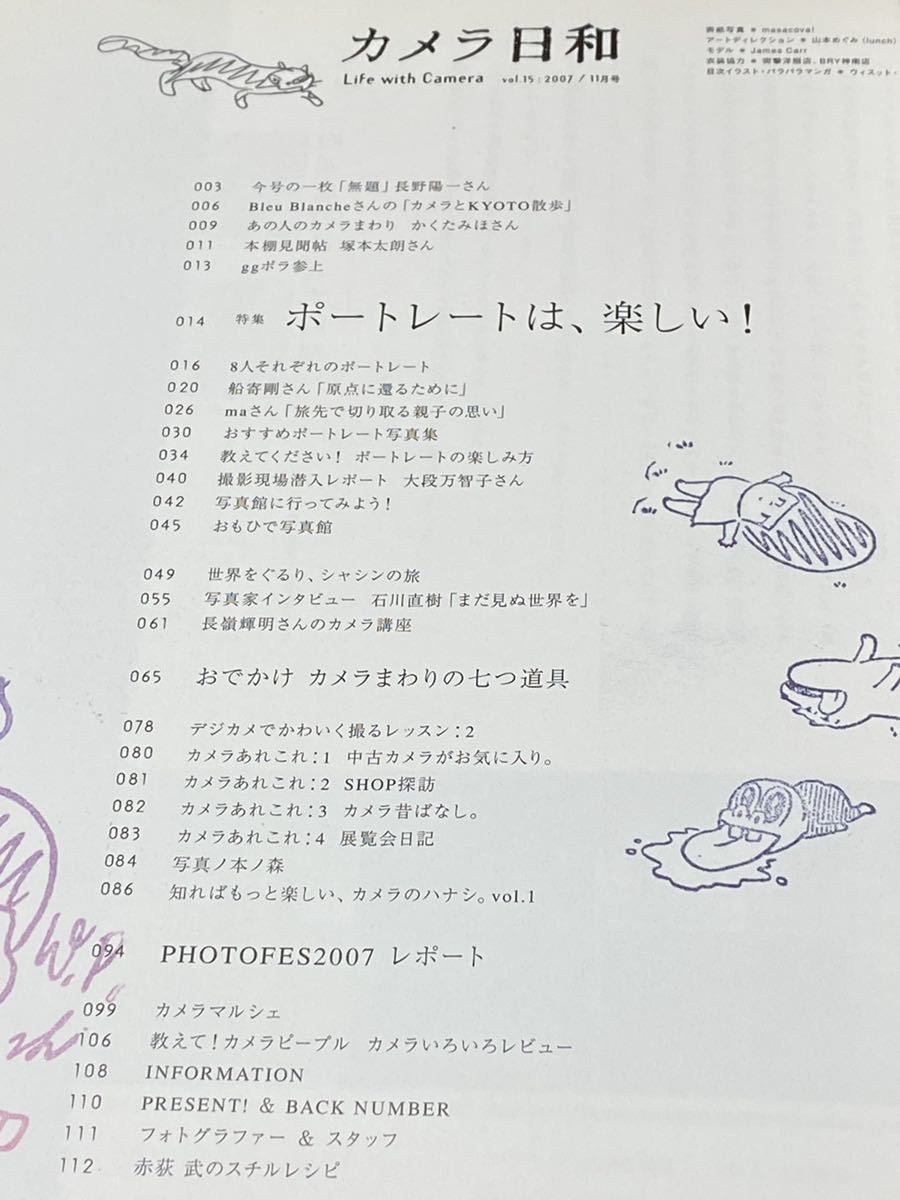 カメラ日和
Life with Camera vol.15 : 2007 / 11月号
表紙写真 * masacova!
アートディレクション * 山本めぐみ (lunch)
モデル * James Carr
衣装協力 * 突撃洋服店、BRY神南店
目次イラスト・パラパラマンガ * ウィスット・
003 今号の一枚「無題」長野陽一さん
006 Bleu Blancheさんの「カメラとKYOTO散歩」
009 あの人のカメラまわり かくたみほさん
011 本棚見聞帖 塚本太朗さん
013 ggボラ参上
014 特集 ポートレートは、楽しい!
016 8人それぞれのポートレート
020 船寄剛さん「原点に還るために」
026 maさん「旅先で切り取る親子の思い」
030 おすすめポートレート写真集
034 教えてください! ポートレートの楽しみ方
040 撮影現場潜入レポート 大段万智子さん
042 写真館に行ってみよう!
045 おもひで写真館
049 世界をぐるり、シャシンの旅
055 写真家インタビュー 石川直樹「まだ見ぬ世界を」
061 長嶺輝明さんのカメラ講座
065 おでかけ カメラまわりの七つ道具
078 デジカメでかわいく撮るレッスン:2
080 カメラあれこれ:1 中古カメラがお気に入り。
081 カメラあれこれ:2 SHOP探訪
082 カメラあれこれ:3 カメラ昔ばなし。
083 カメラあれこれ:4 展覧会日記
084 写真ノ本ノ森
086 知ればもっと楽しい、カメラのハナシ。vol.1
094 PHOTOFES2007 レポート
099 カメラマルシェ
106 教えて!カメラピープル カメラいろいろレビュー
108 INFORMATION
110 PRESENT! & BACK NUMBER
111 フォトグラファー & スタッフ
112 赤荻 武のスチルレシピ